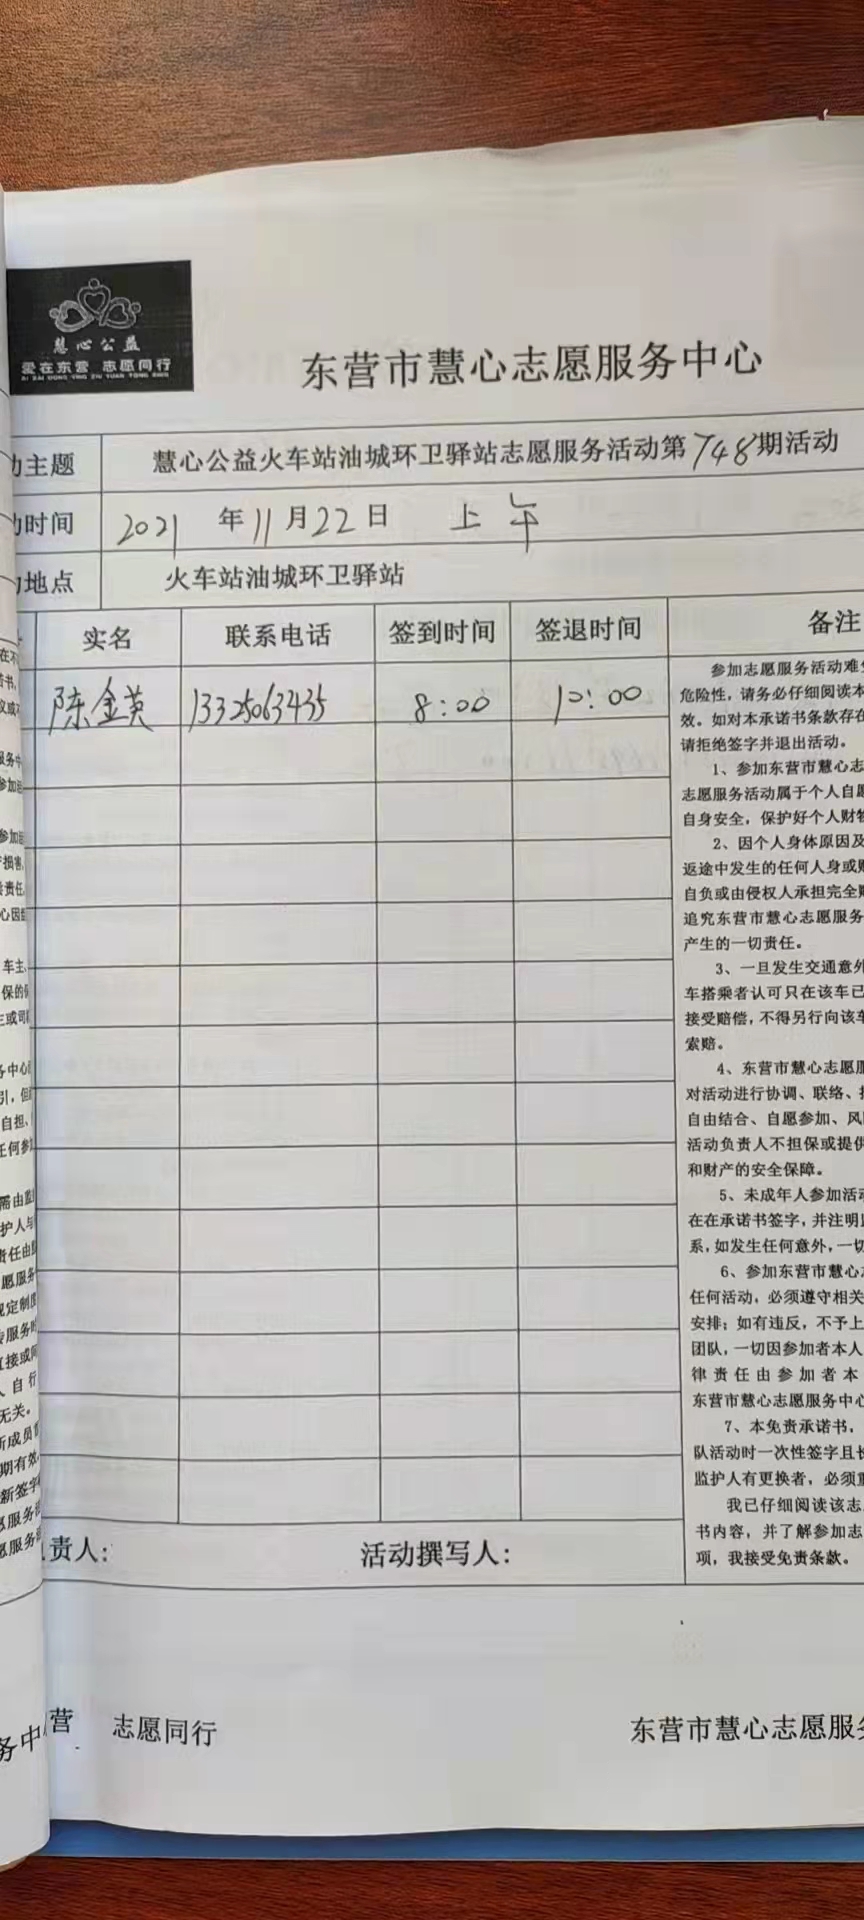 慧心公益
爱在东营 志愿同行
AI ZAI DONG YING ZHI YUAN TONG XING
东营市慧心志愿服务中心
主题 慧心公益火车站油城环卫驿站志愿服务活动第748期活动
时间 2021 年11月22日 上午
地点 火车站油城环卫驿站
实名 联系电话 签到时间 签退时间 备注
陈金英 13325063435 8:00 10:00
参加志愿服务活动难
危险性，请务必仔细阅读本
效。如对本承诺书条款存在
请拒绝签字并退出活动。
1、参加东营市慧心志
志愿服务活动属于个人自愿
自身安全，保护好个人财物
2、因个人身体原因及
返途中发生的任何人身或财
自负或由侵权人承担完全赔
追究东营市慧心志愿服务
产生的一切责任。
3、一旦发生交通意外
车搭乘者认可只在该车已
接受赔偿，不得另行向该车
索赔。
4、东营市慧心志愿服
对活动进行协调、联络、
自由结合、自愿参加、风
活动负责人不担保或提供
和财产的安全保障。
5、未成年人参加活动
在在承诺书签字，并注明
系，如发生任何意外，一切
6、参加东营市慧心志
任何活动，必须遵守相关
安排；如有违反，不予上
团队，一切因参加者本人
律责任由参加者本
东营市慧心志愿服务中心
7、本免责承诺书，
队活动时一次性签字且长
监护人有更换者，必须重
我已仔细阅读该志
书内容，并了解参加志
项，我接受免责条款。
责人： 活动撰写人：
营 志愿同行 东营市慧心志愿服务